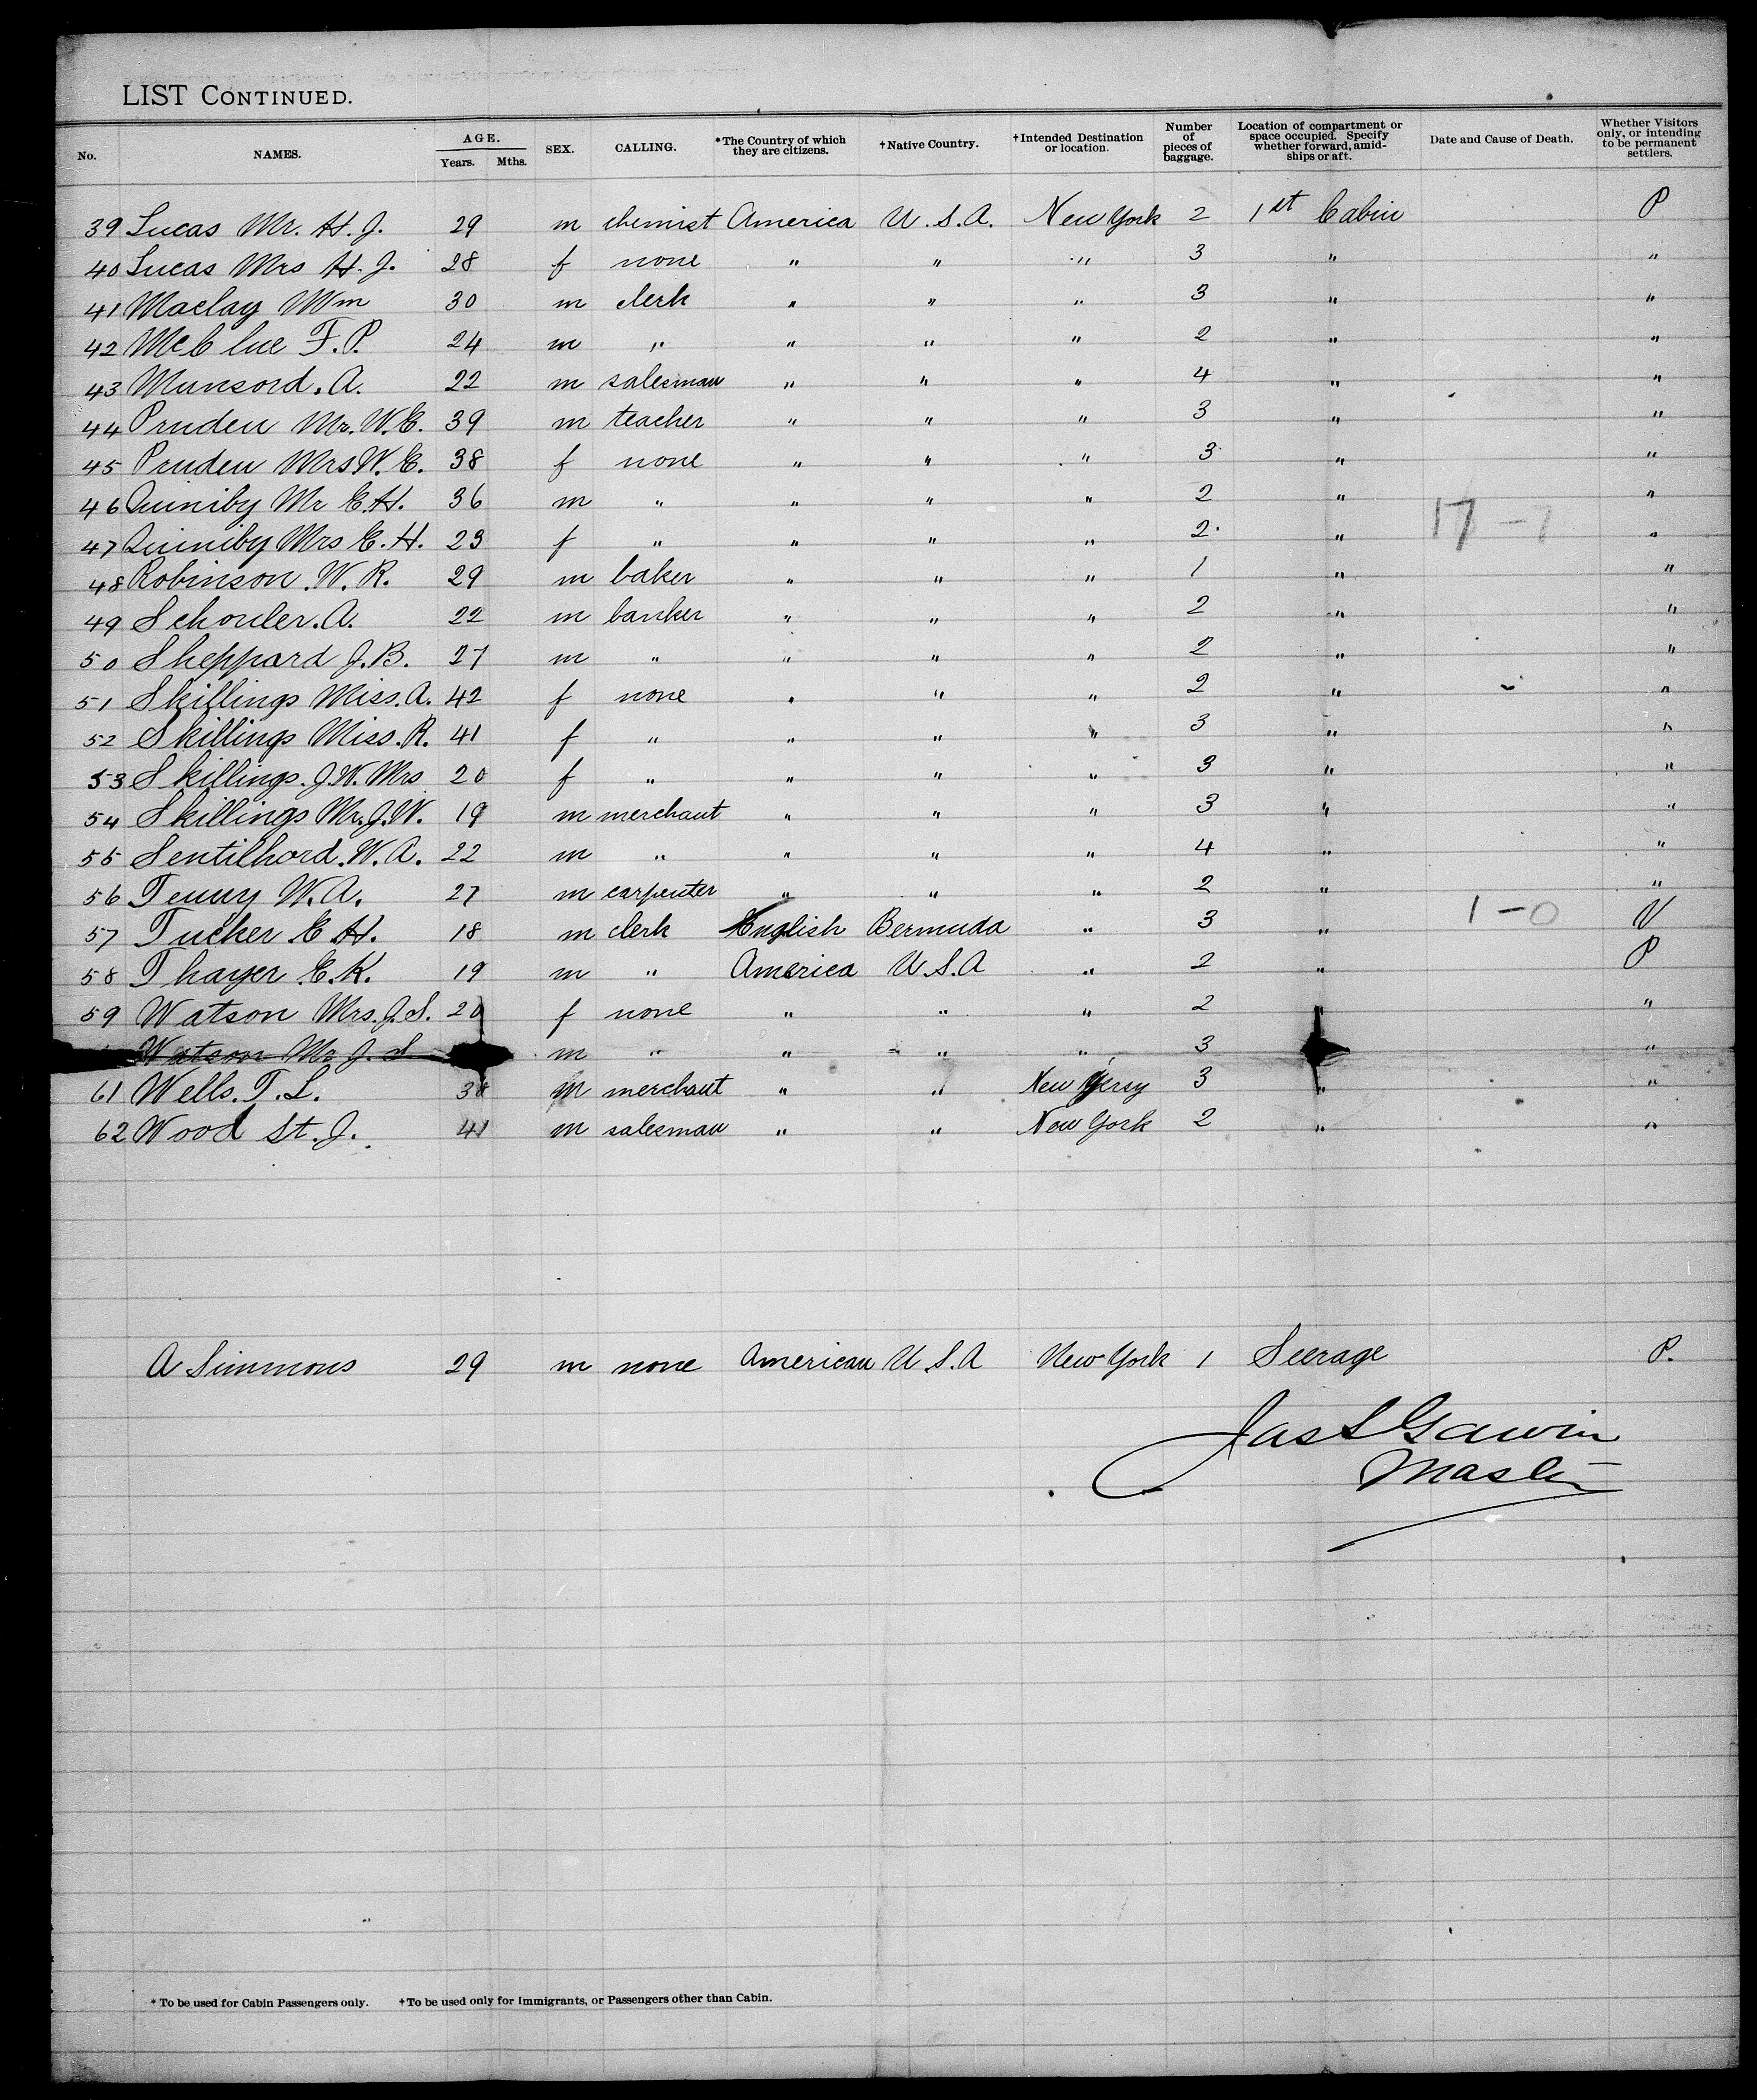 LIST CONTINUED.
No. NAMES. AGE. Years. Mths. SEX. CALLING. *The Country of which they are citizens. †Native Country. †Intended Destination or location. Number of pieces of baggage. Location of compartment or space occupied. Specify whether forward, amid-ships or aft. Date and Cause of Death. Whether Visitors only, or intending to be permanent settlers.
39 Lucas Mr. H. J. 29 m chemist America U.S.A. New York 2 1st Cabin P
40 Lucas Mrs H. J. 28 f none " " " 3 " "
41 Maclay Wm 30 m clerk " " " 3 " "
42 McClue F. P. 24 m " " " " 2 " "
43 Munsord. A. 22 m salesman " " " 4 " "
44 Pruden Mr. W. E. 39 m teacher " " " 3 " "
45 Pruden Mrs W. E. 38 f none " " " 3 " "
46 Quimby Mr E. H. 36 m " " " " 2 " "
47 Quimby Mrs E. H. 23 f " " " " 2 " 17 - 7 "
48 Robinson. W. R. 29 m baker " " " 1 " "
49 Schouler. A. 22 m banker " " " 2 " "
50 Sheppard J. B. 27 m " " " " 2 " "
51 Skillings Miss. A. 42 f none " " " 2 " "
52 Skillings Miss. R. 41 f " " " " 3 " "
53 Skillings. J. W. Mrs 20 f " " " " 3 " "
54 Skillings Mr. J. W. 19 m merchant " " " 3 " "
55 Sentilhord. W. A. 22 m " " " " 4 " "
56 Tenny W. A. 27 m carpenter " " " 2 " "
57 Tucker E H. 18 m clerk English Bermuda " 3 " 1 - 0 V
58 Thayer E. K. 19 m " America U.S.A " 2 " P
59 Watson Mrs. J. S. 20 f none " " " 2 " "
Watson Mr J. S m " " " " 3 "
61 Wells. T. L. 38 m merchant " " New Jersy 3 " "
62 Wood St. J. 41 m salesman " " New York 2 " "
A Simmons 29 m none American U S. A New York 1 Seerage P.
Jas S Garvin
Master
* To be used for Cabin Passengers only. †To be used only for Immigrants, or Passengers other than Cabin.